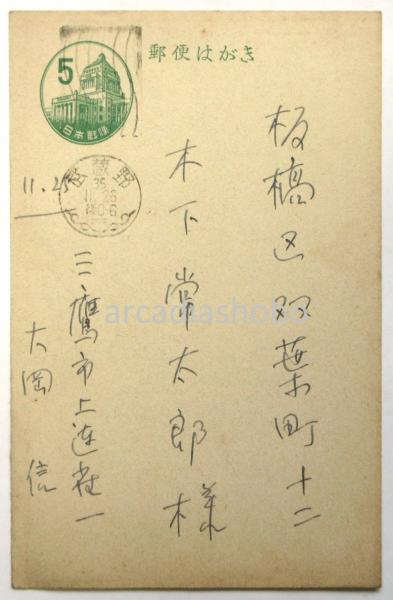 郵便はがき
5
日本郵便
武蔵野
35
11.25
板橋区双葉町十二
木下常太郎様
三鷹市上連雀一
大岡信
arcadiashobo